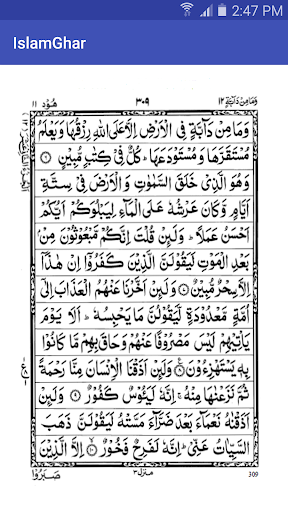 2:47 PM
IslamGhar
وَمَا مِنْ دَآبَّةٍ ١٢
٣٠٩
هُوْد ١١
وَمَا مِنْ دَآبَّةٍ فِي الْاَرْضِ اِلَّا عَلَى اللّٰهِ رِزْقُهَا وَيَعْلَمُ
مُسْتَقَرَّهَا وَمُسْتَوْدَعَهَا ؕ كُلٌّ فِيْ كِتٰبٍ مُّبِيْنٍ ۝
وَهُوَ الَّذِيْ خَلَقَ السَّمٰوٰتِ وَالْاَرْضَ فِيْ سِتَّةِ
اَيَّامٍ وَّكَانَ عَرْشُهٗ عَلَى الْمَآءِ لِيَبْلُوَكُمْ اَيُّكُمْ
اَحْسَنُ عَمَلًا ؕ وَلَئِنْ قُلْتَ اِنَّكُمْ مَّبْعُوْثُوْنَ مِنْۢ
بَعْدِ الْمَوْتِ لَيَقُوْلَنَّ الَّذِيْنَ كَفَرُوْٓا اِنْ هٰذَآ
اِلَّا سِحْرٌ مُّبِيْنٌ ۝ وَلَئِنْ اَخَّرْنَا عَنْهُمُ الْعَذَابَ اِلٰٓى
اُمَّةٍ مَّعْدُوْدَةٍ لَّيَقُوْلُنَّ مَا يَحْبِسُهٗ ؕ اَلَا يَوْمَ
يَاْتِيْهِمْ لَيْسَ مَصْرُوْفًا عَنْهُمْ وَحَاقَ بِهِمْ مَّا كَانُوْا
بِهٖ يَسْتَهْزِءُوْنَ ۝ وَلَئِنْ اَذَقْنَا الْاِنْسَانَ مِنَّا رَحْمَةً
ثُمَّ نَزَعْنٰهَا مِنْهُ ۚ اِنَّهٗ لَيَـُٔوْسٌ كَفُوْرٌ ۝ وَلَئِنْ
اَذَقْنٰهُ نَعْمَآءَ بَعْدَ ضَرَّآءَ مَسَّتْهُ لَيَقُوْلَنَّ ذَهَبَ
السَّيِّاٰتُ عَنِّيْ ؕ اِنَّهٗ لَفَرِحٌ فَخُوْرٌ ۝ اِلَّا الَّذِيْنَ
صَبَرُوْا
منزل ٣
309